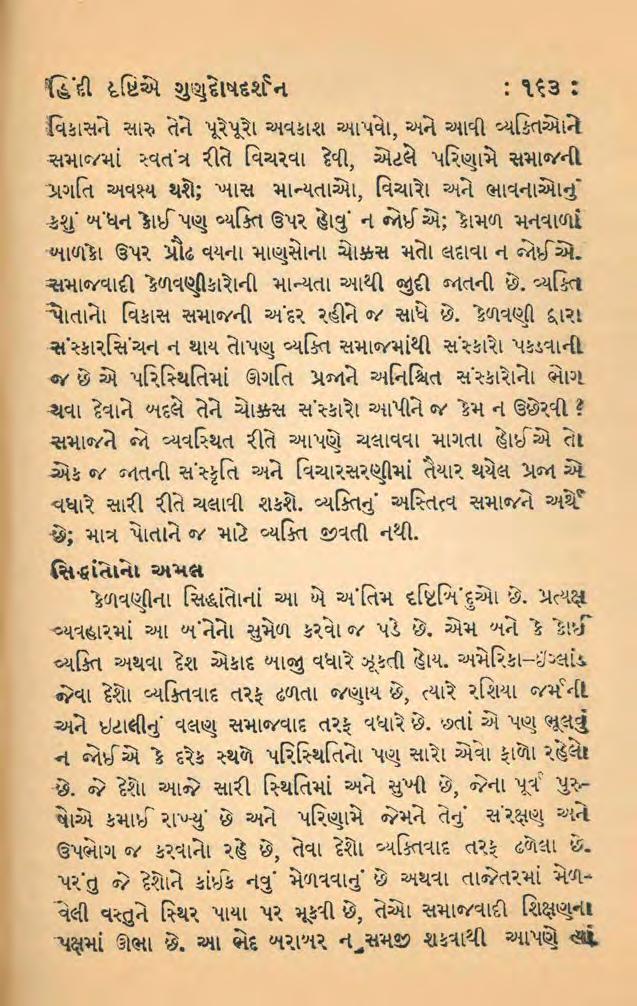 હિંદી દૃષ્ટિએ ગુણદોષદર્શન : ૧૬૩ :
વિકાસને સારુ તેને પૂરેપૂરો અવકાશ આપવો, અને આવી વ્યક્તિઓને
સમાજમાં સ્વતંત્ર રીતે વિચરવા દેવી, એટલે પરિણામે સમાજની
પ્રગતિ અવશ્ય થશે; ખાસ માન્યતાઓ, વિચારો અને ભાવનાઓનું
કશું બંધન કોઈ પણ વ્યક્તિ ઉપર હોવું ન જોઈએ; કોમળ મનવાળાં
બાળકો ઉપર પ્રૌઢ વયના માણસોના ચોક્કસ મતો લદાવા ન જોઈએ.
સમાજવાદી કેળવણીકારોની માન્યતા આથી જુદી જાતની છે. વ્યક્તિ
પોતાનો વિકાસ સમાજની અંદર રહીને જ સાધે છે. કેળવણી દ્વારા
સંસ્કારસિંચન ન થાય તોપણ વ્યક્તિ સમાજમાંથી સંસ્કારો પકડવાની
જ છે એ પરિસ્થિતિમાં ઊગતિ પ્રજાને અનિશ્ચિત સંસ્કારોનો ભોગ
થવા દેવાને બદલે તેને ચોક્કસ સંસ્કારો આપીને જ કેમ ન ઉછેરવી ?
સમાજને જો વ્યવસ્થિત રીતે આપણે ચલાવવા માગતા હોઈએ તો
એક જ જાતની સંસ્કૃતિ અને વિચારસરણીમાં તૈયાર થયેલ પ્રજા એ
વધારે સારી રીતે ચલાવી શકશે. વ્યક્તિનું અસ્તિત્વ સમાજને અર્થે
છે; માત્ર પોતાને જ માટે વ્યક્તિ જીવતી નથી.
સિદ્ધાંતોનો અમલ
કેળવણીના સિદ્ધાંતોનાં આ બે અંતિમ દૃષ્ટિબિંદુઓ છે. પ્રત્યક્ષ
વ્યવહારમાં આ બંનેનો સુમેળ કરવો જ પડે છે. એમ બને કે કોઈ
વ્યક્તિ અથવા દેશ એકાદ બાજુ વધારે ઝૂકતી હોય. અમેરિકા–ઈંગ્લાંડ
જેવા દેશો વ્યક્તિવાદ તરફ ઢળતા જણાય છે, ત્યારે રશિયા જર્મની
અને ઇટાલીનું વલણ સમાજવાદ તરફ વધારે છે. છતાં એ પણ ભૂલવું
ન જોઈએ કે દરેક સ્થળે પરિસ્થિતિનો પણ સારો એવો ફાળો રહેલો
છે. જે દેશો આજે સારી સ્થિતિમાં અને સુખી છે, જેના પૂર્વ પુરુ-
ષોએ કમાઈ રાખ્યું છે અને પરિણામે જેમને તેનું સંરક્ષણ અને
ઉપભોગ જ કરવાનો રહે છે, તેવા દેશો વ્યક્તિવાદ તરફ ઢળેલા છે.
પરંતુ જે દેશોને કાંઈક નવું મેળવવાનું છે અથવા તાજેતરમાં મેળ-
વેલી વસ્તુને સ્થિર પાયા પર મૂકવી છે, તેઓ સમાજવાદી શિક્ષણના
પક્ષમાં ઊભા છે. આ ભેદ બરાબર ન સમજી શકવાથી આપણે ત્યાં